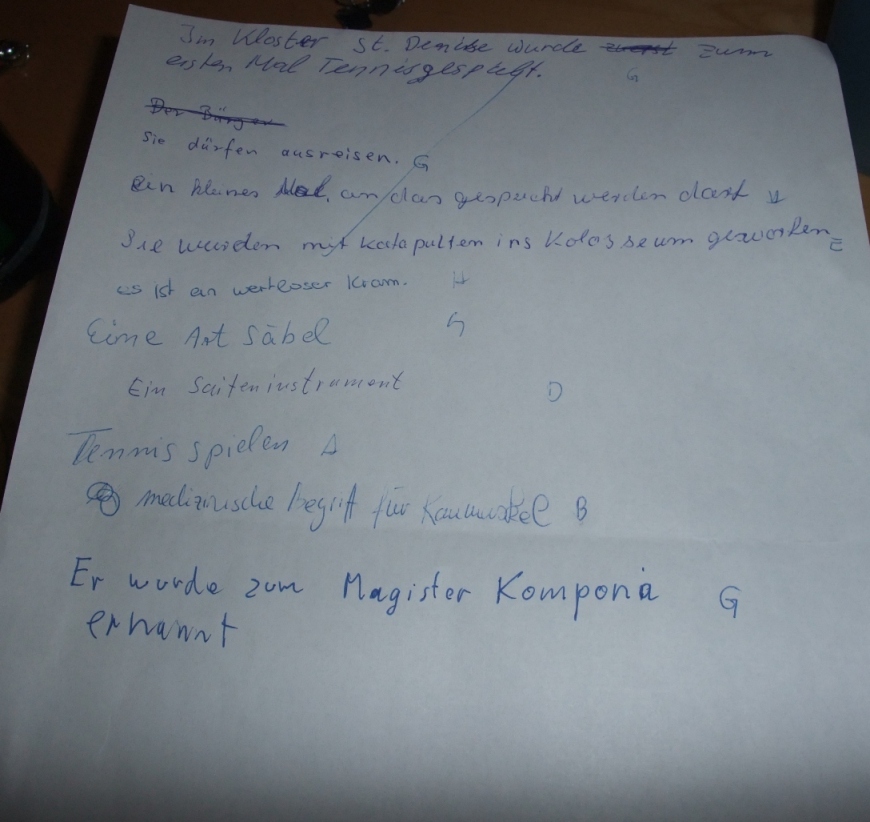 Im Kloster St. Denise wurde zuerst zum
ersten Mal Tennisgespielt. G
Der Bürger
Sie dürfen ausreisen. G
ein kleines Mal, an das gespuckt werden darf H
Sie wurden mit Katapulten ins Kolosseum geworfen E
es ist ein wertloser Kram. H
Eine Art Säbel G
Ein Saiteninstrument D
Tennis spielen A
medizinische begriff für Kaumuskel B
Er wurde zum Magister Komponia G
ernannt